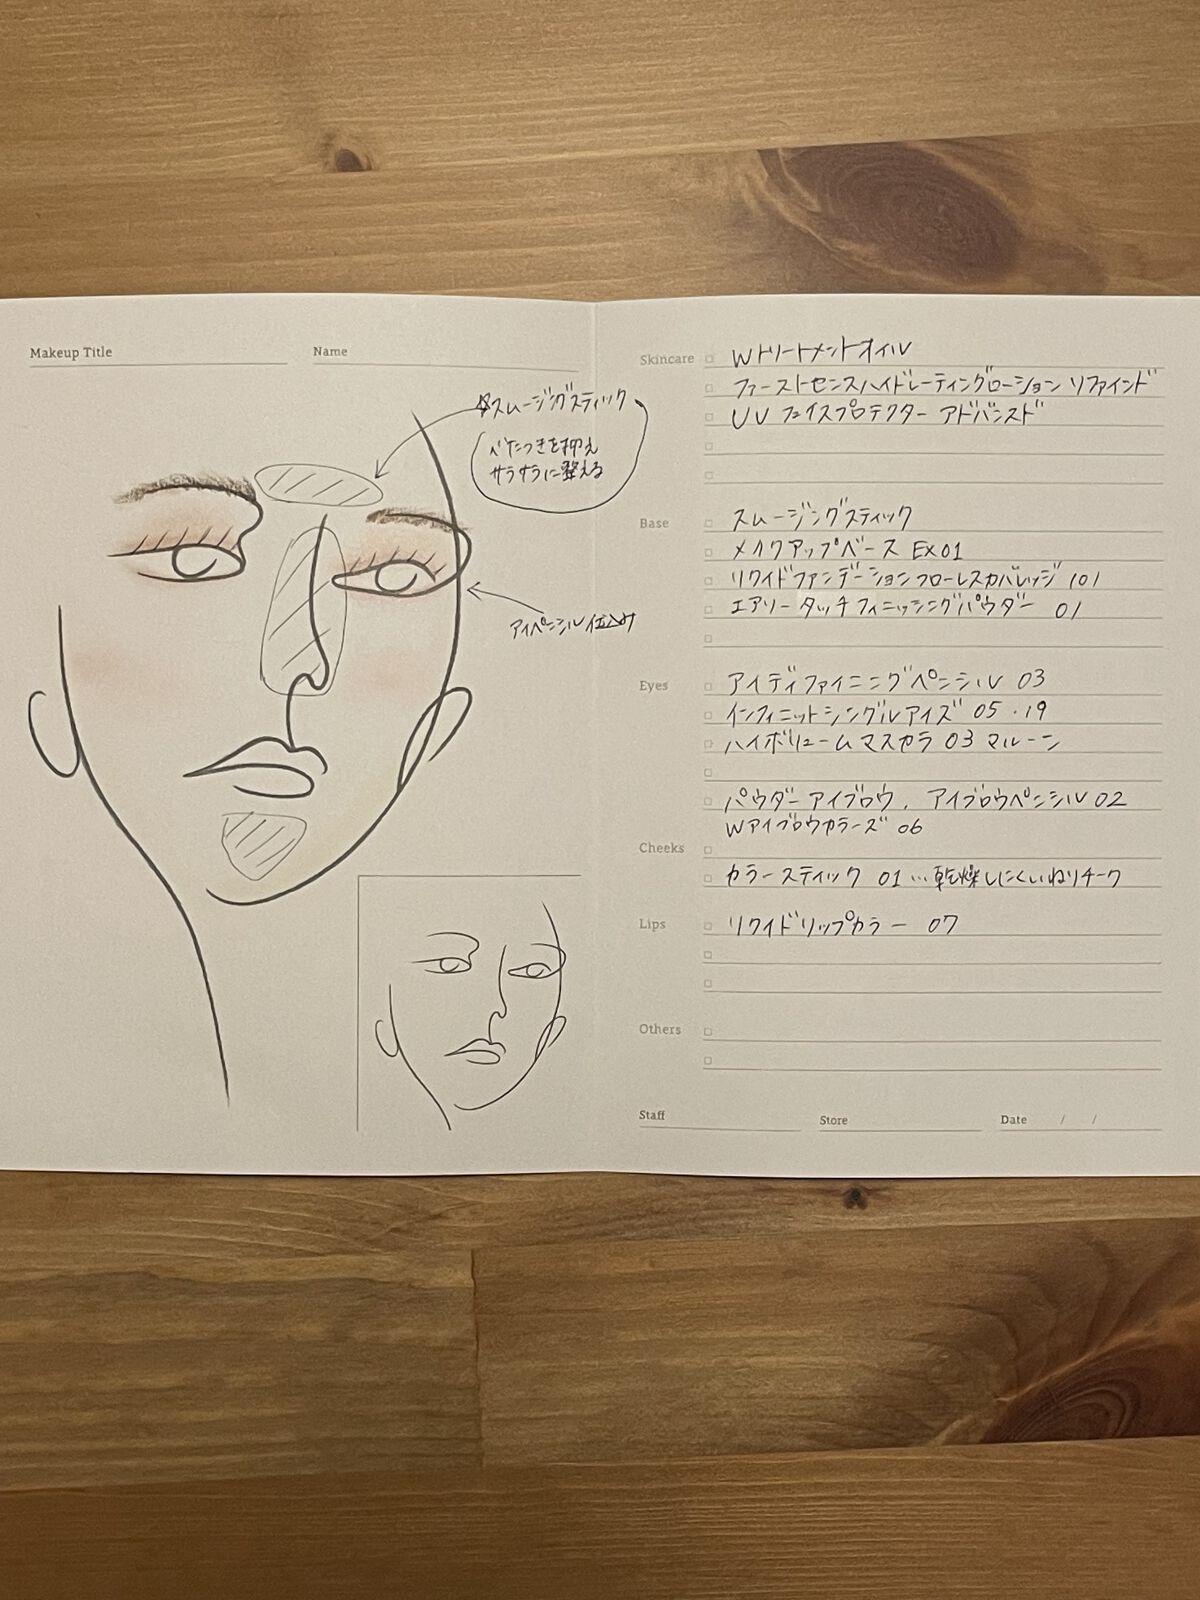 Makeup Title
Name
☆スムージングスティック
べたつきを抑え
サラサラに整える
アイペンシル仕込み
Skincare
Wトリートメントオイル
ファーストセンスハイドレーティングローション リファインド
UV フェイスプロテクター アドバンスド
Base
スムージングスティック
メイクアップベース EX01
リクイドファンデーションフローレスカバレッジ 101
エアリータッチフィニッシングパウダー 01
Eyes
アイディファイニングペンシル 03
インフィニットシングルアイズ 05・19
ハイボリュームマスカラ 03 マルーン
パウダーアイブロウ、アイブロウペンシル 02
Wアイブロウカラーズ 06
Cheeks
カラースティック 01…乾燥しにくいねりチーク
Lips
リクイドリップカラー 07
Others
Staff
Store
Date / /